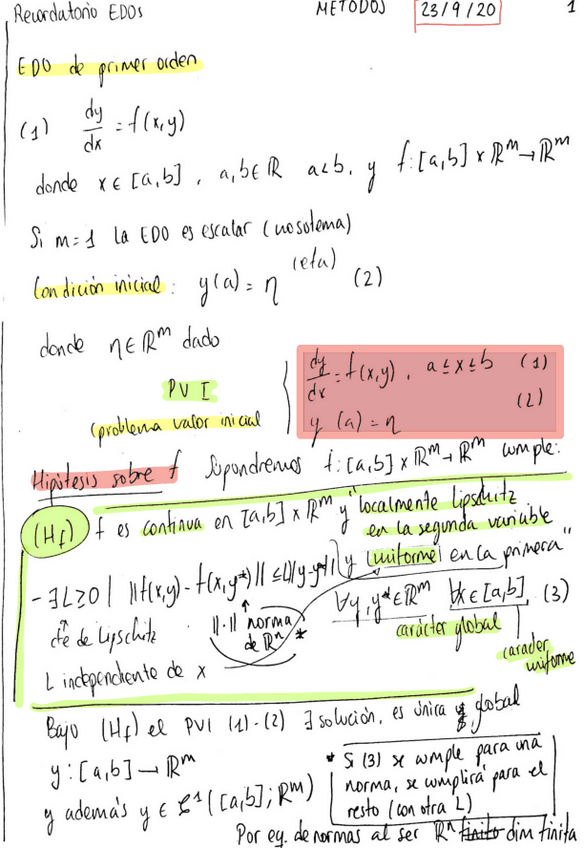 Recordatorio EDOs METODOS 23/9/20 1
EDO de primer orden
(1) dy/dx = f(x,y)
donde x ∈ [a,b], a,b ∈ ℝ a<b, y f:[a,b] x ℝᵐ → ℝᵐ
Si m=1 la EDO es escalar (no sistema)
(eta)
Condición inicial: y(a) = η (2)
donde η ∈ ℝᵐ dado
PVI
(problema valor inicial
dy/dx = f(x,y), a ≤ x ≤ b (1)
y(a) = η (2)
Hipótesis sobre f Supondremos f:[a,b] x ℝᵐ → ℝᵐ cumple:
(Hf) f es continua en [a,b] x ℝᵐ y "localmente Lipschitz
en la segunda variable
y (uniforme) en la primera"
- ∃L≥0 | ||f(x,y) - f(x,y*)|| ≤ L||y-y*||
∀y,y* ∈ ℝᵐ ∀x ∈ [a,b], (3)
cte de Lipschitz
||·|| norma
de ℝⁿ *
carácter global
caracter
uniforme
L independiente de x
Bajo (Hf) el PVI (1)-(2) ∃ solución, es única y global
y:[a,b] → ℝᵐ
y además y ∈ C¹([a,b]; ℝᵐ)
* Si (3) se cumple para una
norma, se cumplirá para el
resto (con otra L)
Por eq. de normas al ser ℝⁿ finito dim finita